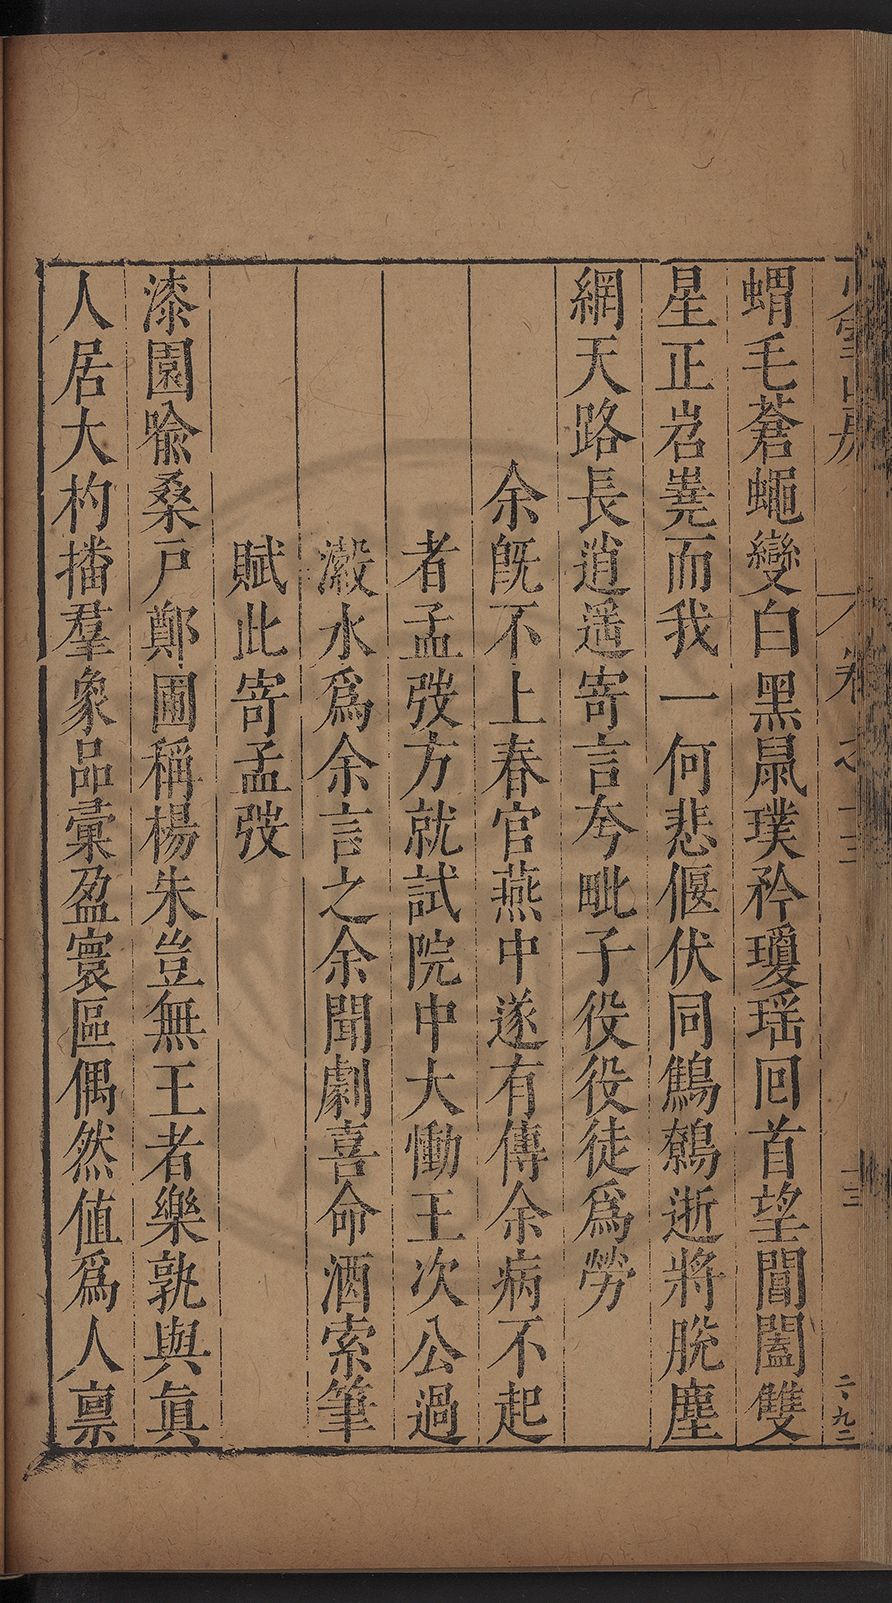 卷之十三
十三
二、九二
蝟毛蒼蠅變白黑鼠璞矜瓊瑶回首望閶闔雙
星正岧嶤而我一何悲偃伏同鷦鷯逝將脫塵
網天路長逍遥寄言夸毗子役役徒爲勞
余旣不上春官燕中遂有傳余病不起
者孟弢方就試院中大慟王次公過
瀔水爲余言之余聞劇喜命酒索筆
賦此寄孟弢
漆園喩桑戸鄭圃稱楊朱豈無王者樂孰與眞
人居大杓播羣象品彙盈寰區偶然值爲人禀